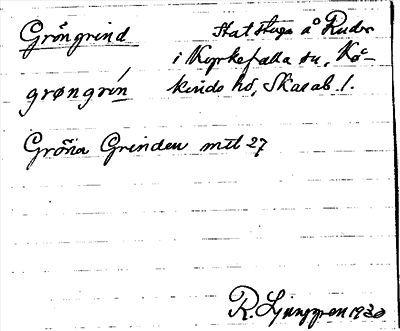 Gröngrind Statstuga å Ruder
i Kyrkefalla sn, Kå-
grøngrín kinds hd, Skarab. l.
Gröna Grinden mtl 27
R. Ljunggren 1930